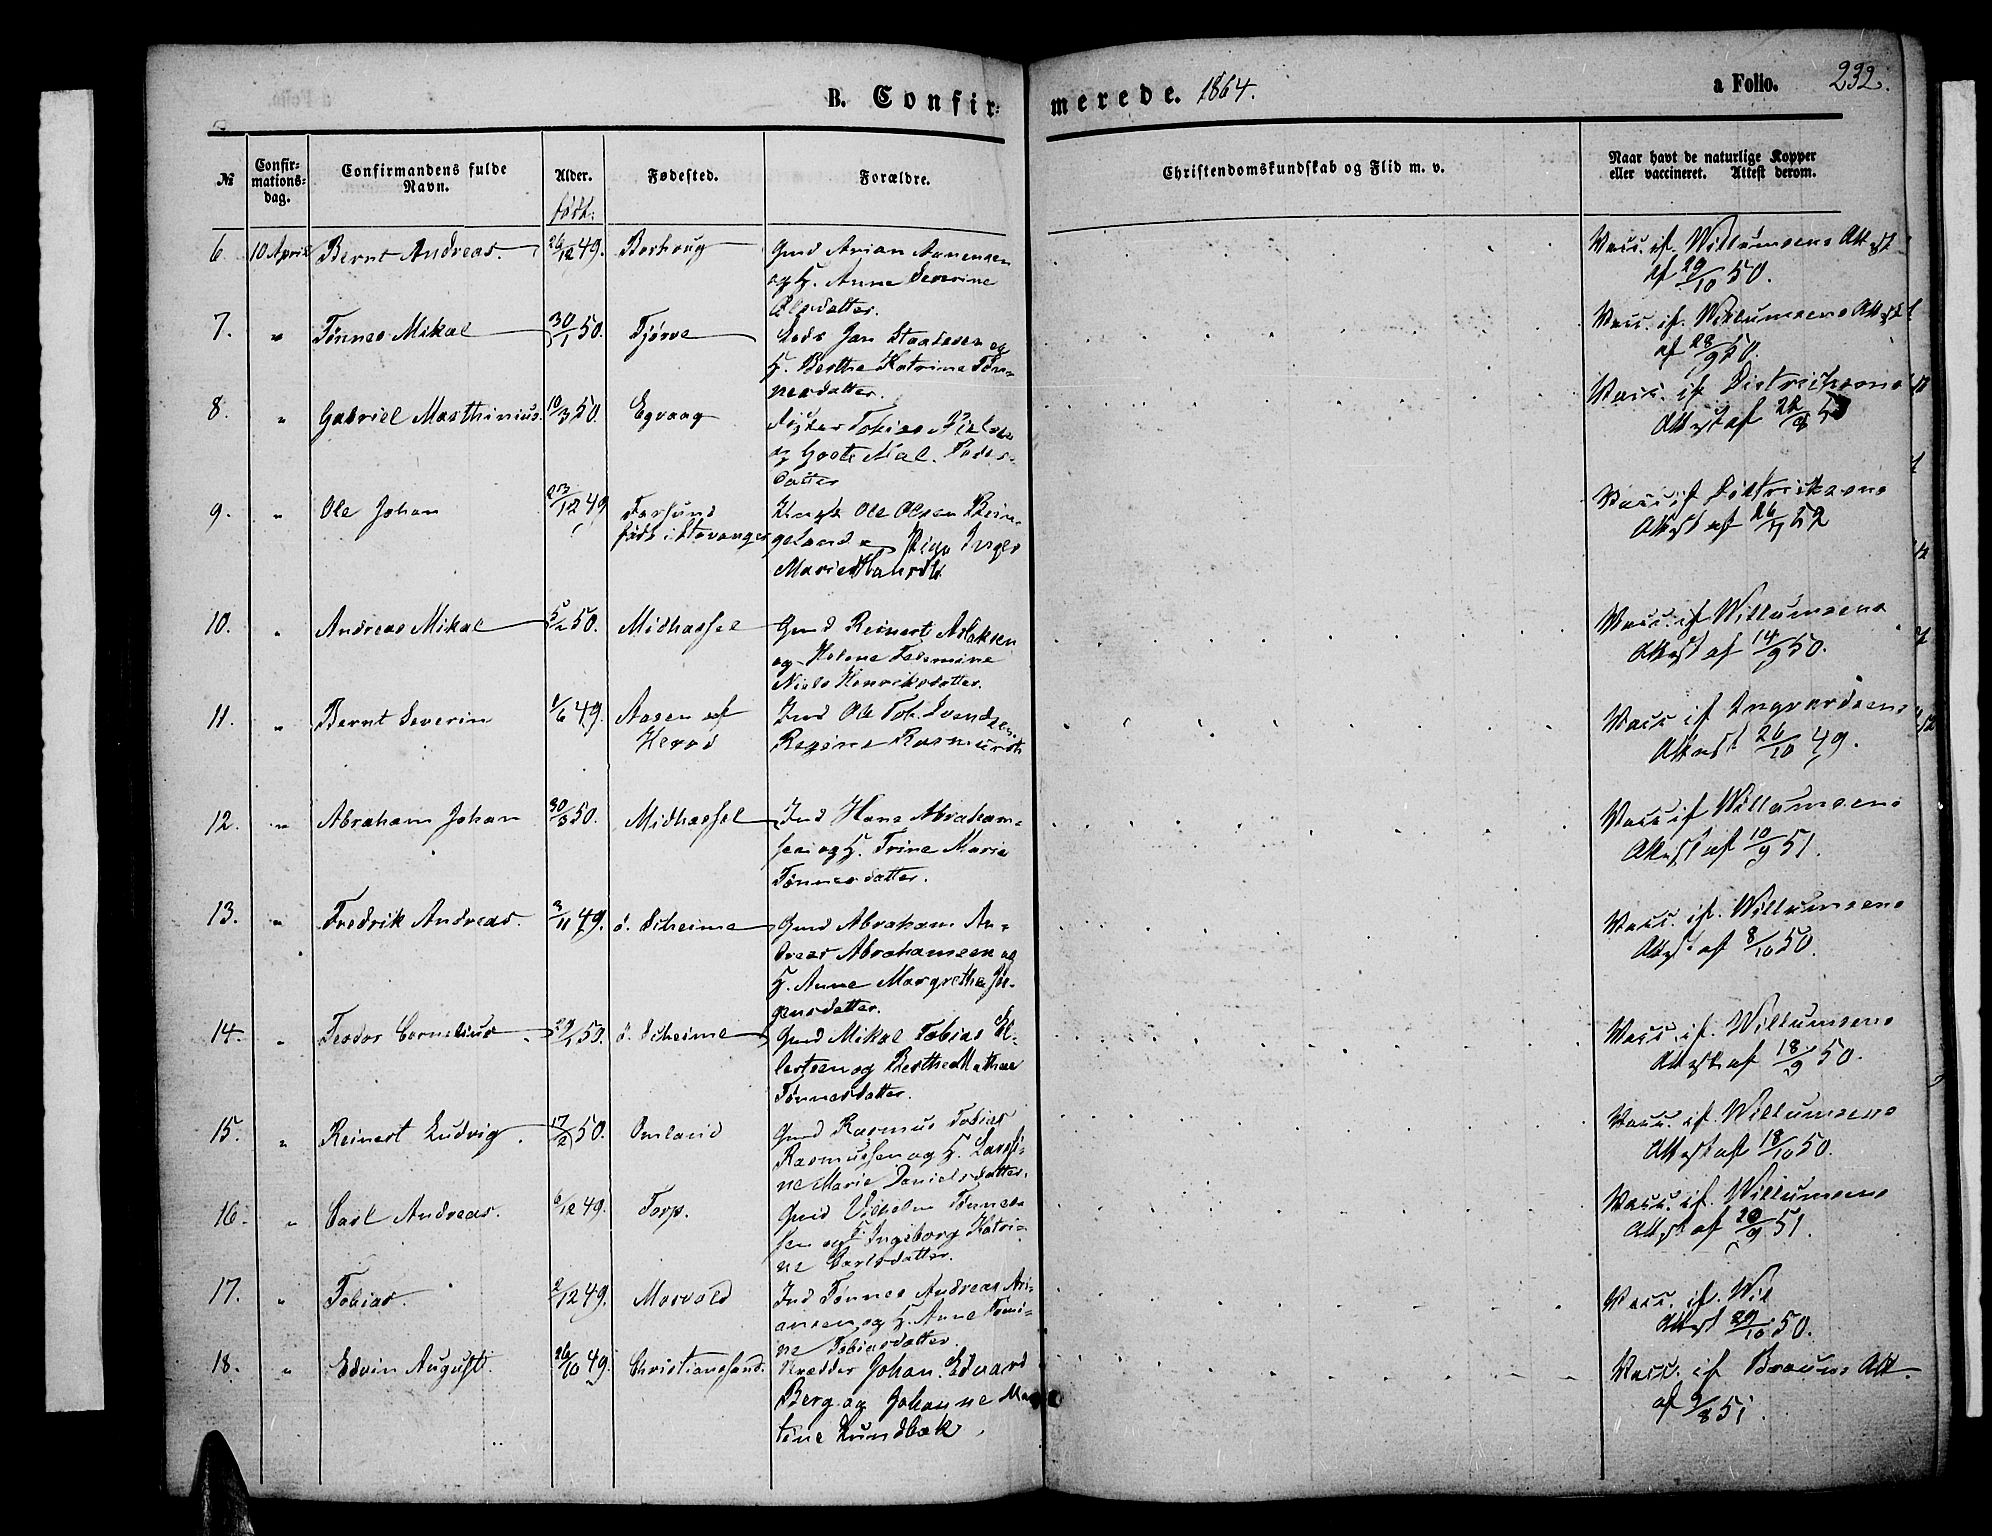 B. Confirmerede. 1864. a Folio. 232.
№ Confirmationsdag. Confirmandens fulde Navn. Alder. født: Fødested. Forældre. Christendomskundskab og Flid m. v. Naar havt de naturlige Kopper eller vaccineret. Attest derom.
6. 10 April Bernt Andreas. 26/12 49. Borhoug Gmd Arian Aanensen
og H. Anne Severine
Olsdatter.
Vacc. if. Willumsens Attest
af 29/10 50.
7. " Tønnes Mikal 30/1 50. Tjørve Jan
H. Berthe Katrine Tøn-
nesdatter.
Vacc. if. Willumsens Attest
af 28/9 50.
8. " Gabriel Marthinius. 10/3 50. Egvaag Tobias
og Mal. Peders-
datter
Vacc. if Districhsens
Attest af
9. " Ole Johan 23/12 49 Farsund
født i Stavanger
Ole Olsen Rein-
geland Pige Inger
Marie
Vacc if Districksens
Attest af 52
10. " Andreas Mikal 5/2 50. Midhassel Gmd Reinert Aslaksen
og Helene Tesemine
Niels Henriksdatter.
Vacc. if Willumsens
Attest af 14/9 50.
11. " Bernt Severin 1/6 49. Aasen af
Herad
Ind Ole Tob. Svendsen
Regine Rasmusdt
Vacc if Ingvardsens
Attest 26/10 49.
12. " Abraham Johan 30/3 50. Midhassel Ind Hans Abraham-
sen og H. Trine Marie
Tønnesdatter.
Vacc if Willumsens
Attest af 10/9 51.
13. " Fredrik Andreas. 3/11 49. ø. Skeime Gmd Abraham An-
dreas Abrahamsen og
H. Anne Margrethe Jør-
gensdatter.
Vacc. if. Willumsens
Attst. af 8/10 50.
14. " Teodor Cornelius 50. ø. Skeime Gmd Mikal Tobias El-
lertsen og Berthe Mathea
Tønnesdatter.
Vacc. if. Willumsens
Attest af 18/9 50.
15. " Reinert Ludvig. 17/2 50. Omland Gmd Rasmus Tobias
Rasmussen og H. Lassi-
ne Marie Danielsdatter.
Vacc. if. Willumsens
Attest af 18/10 50.
16. " Carl Andreas. 6/12 49. Torp. Gmd Vilhelm Tønnes-
sen og H. Ingeborg Katri-
ne Carlsdatter.
Vacc. if. Willumsens
Attst af 20/9 51.
17. " Tobias. 2/12 49. Marvold Ind Tønnes Andreas Ari-
ansen og H. Anne Tomi-
ne Tobiasdatter
Vacc. if. Wil
Attest 29/10 50.
18. " Edvin August. 26/10 49. Christianssand. Skrædder Johan Edvard
Berg og Johanne Mar
tine Lundbæk
Vacc. if Brauns Att.
af 9/8 51.